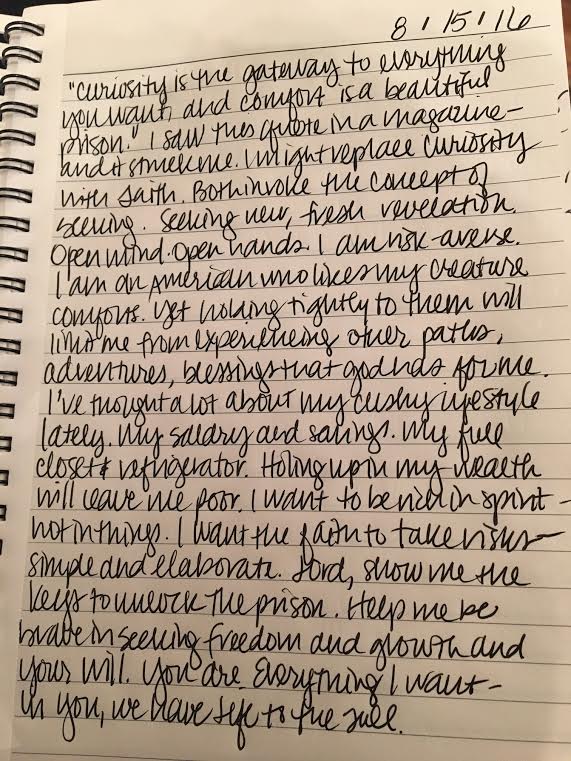 8/15/16
"Curiosity is the gateway to everything
you want, and comfort is a beautiful
prison." I saw this quote in a magazine-
and it struck me. I might replace curiosity
with faith. Both invoke the concept of
seeking. Seeking new, fresh revelation.
Open mind. Open hands. I am risk-averse.
I am an American who likes my creature
comforts. Yet holding tightly to them will
limit me from experiencing other paths,
adventures, blessings that God has for me.
I've thought a lot about my cushy lifestyle
lately. My salary and savings. My full
closet & refrigerator. Holing up in my wealth
will leave me poor. I want to be rich in spirit -
not in things. I want the faith to take risks -
simple and elaborate. Lord, show me the
keys to unlock the prison. Help me be
brave in seeking freedom and growth and
your will. You are everything I want -
in You, we have life to the full.